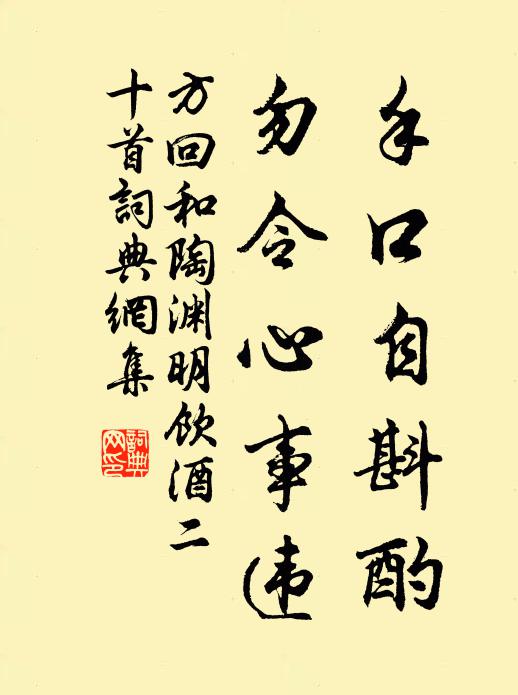 手口自斟酌
勿令心事违
方回和陶渊明饮酒二
十首詞典網集
詞典
网印